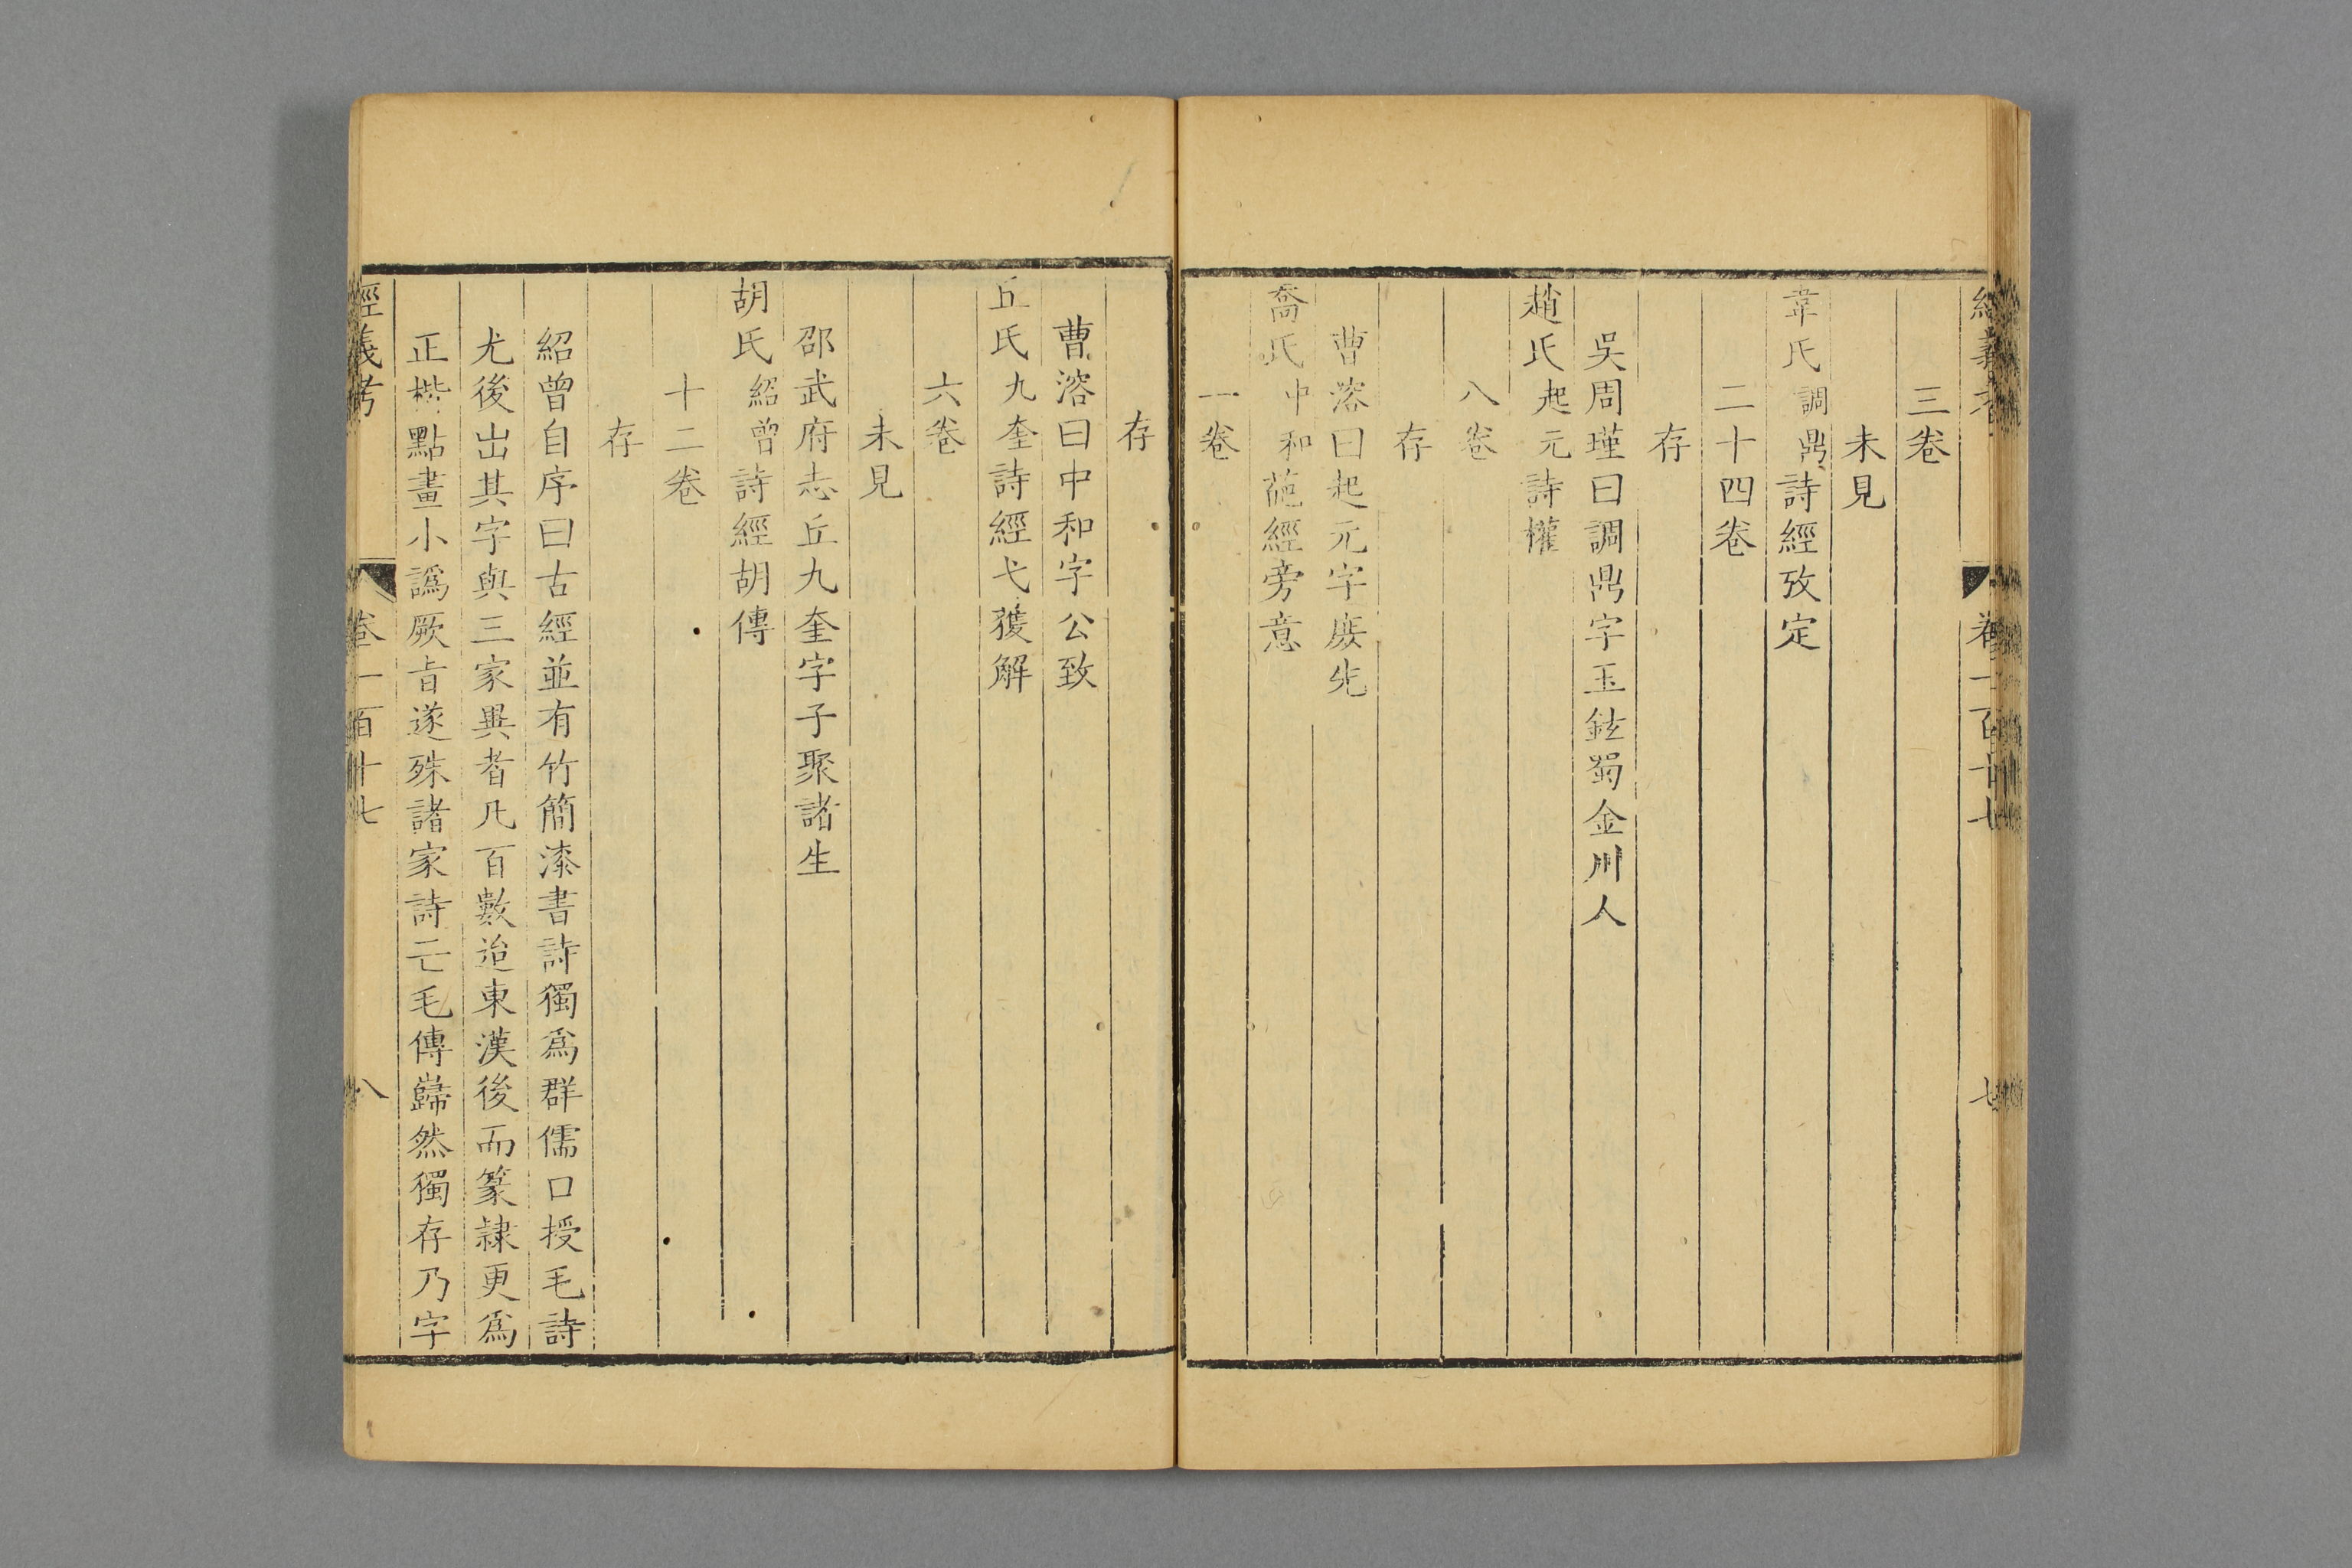 經義考 卷一百十七 七
三卷
未見
韋氏調鼎詩經攷定
二十四卷
存
吳周瑾曰調鼎字玉鉉蜀金川人
趙氏起元詩權
八卷
存
曹溶曰起元字庶先
喬氏中和葩經旁意
一卷
存
曹溶曰中和字公致
丘氏九奎詩經弋獲解
六卷
未見
邵武府志丘九奎字子聚諸生
胡氏紹曾詩經胡傳
十二卷
存
紹曾自序曰古經並有竹簡漆書詩獨爲群儒口授毛詩
尤後出其字與三家異者凡百數迨東漢後而篆隸更爲
正楷點畫小譌厥旨遂殊諸家詩亡毛傳巋然獨存乃字
經義考 卷一百十七 八